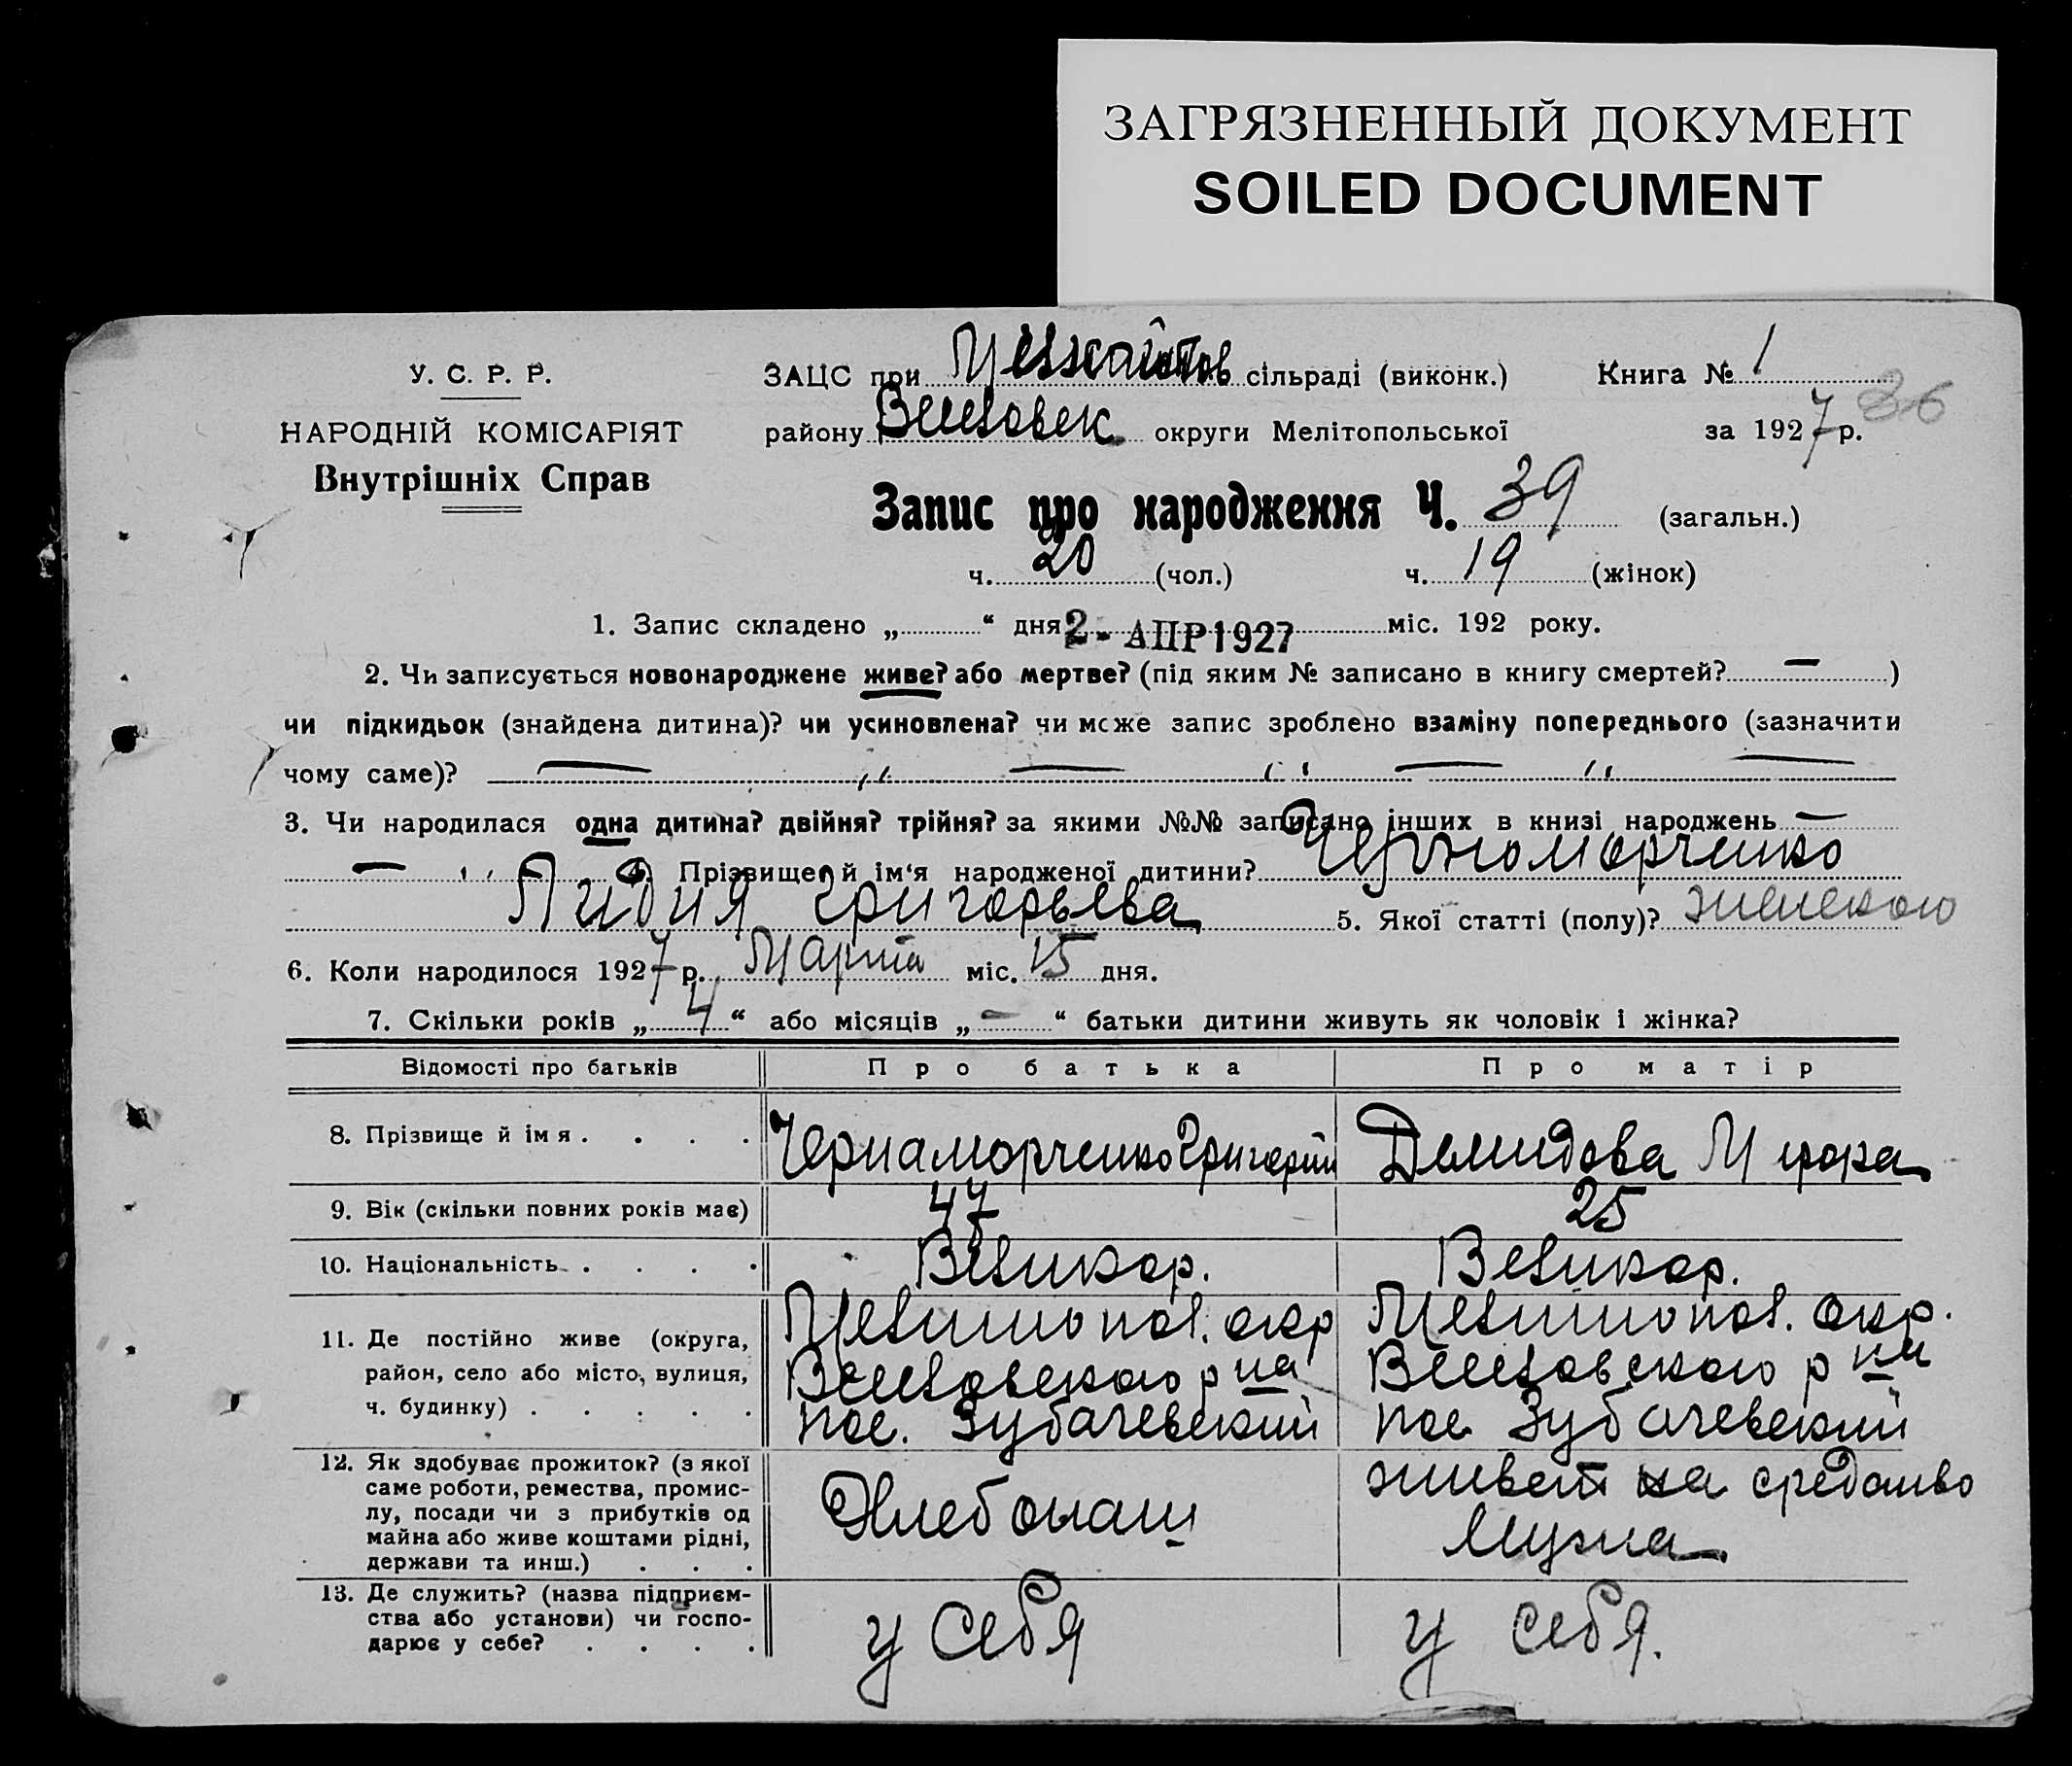 ЗАГРЯЗНЕННЫЙ ДОКУМЕНТ
SOILED DOCUMENT
У. С. Р. Р.
НАРОДНІЙ КОМІСАРІЯТ
Внутрішніх Справ
ЗАЦС при сільраді (виконк.) Книга № 1
36
району Веселовск округи Мелітопольської за 1927 р.
Запис про народження Ч. 39 (загальн.)
ч. 20 (чол.) ч. 19 (жінок)
1. Запис складено „ “ дня 2 - АПР 1927 міс. 192 року.
2. Чи записується новонароджене живе? або мертве? (під яким № записано в книгу смертей? — )
чи підкидьок (знайдена дитина)? чи усиновлена? чи може запис зроблено взаміну попереднього (зазначити
чому саме)? — " — " — " —
3. Чи народилася одна дитина? двійня? трійня? за якими №№ записано інших в книзі народжень —
— " 4. Прізвище й ім‘я народженої дитини? Черноморченко
Лидия Григорьева 5. Якої статті (полу)? женского
6. Коли народилося 1927 р. Марта міс. 15 дня.
7. Скільки років „ 4 “ або місяців „ — “ батьки дитини живуть як чоловік і жінка?
Відомості про батьків Про батька Про матір
8. Прізвище й імя . . . . Чернаморченко Григорий Демидова
9. Вік (скільки повних років має) 47 25
10. Національність . . . . Великор. Великор.
11. Де постійно живе (округа, Мелитопол. окр Мелитопол. окр.
район, село або місто, вулиця, Веселовского р на Веселовского р на
ч. будинку) . . . . . пос. Зубачевский пос Зубачевский
12. Як здобуває прожиток? (з якої
саме роботи, ремества, промис-
лу, посади чи з прибутків од
майна або живе коштами рідні,
держави та инш.) . . . Хлебопаш живет на средство
мужа
13. Де служить? (назва підприєм-
ства або установи) чи госпо-
дарює у себе? . . . . у себя у себя.